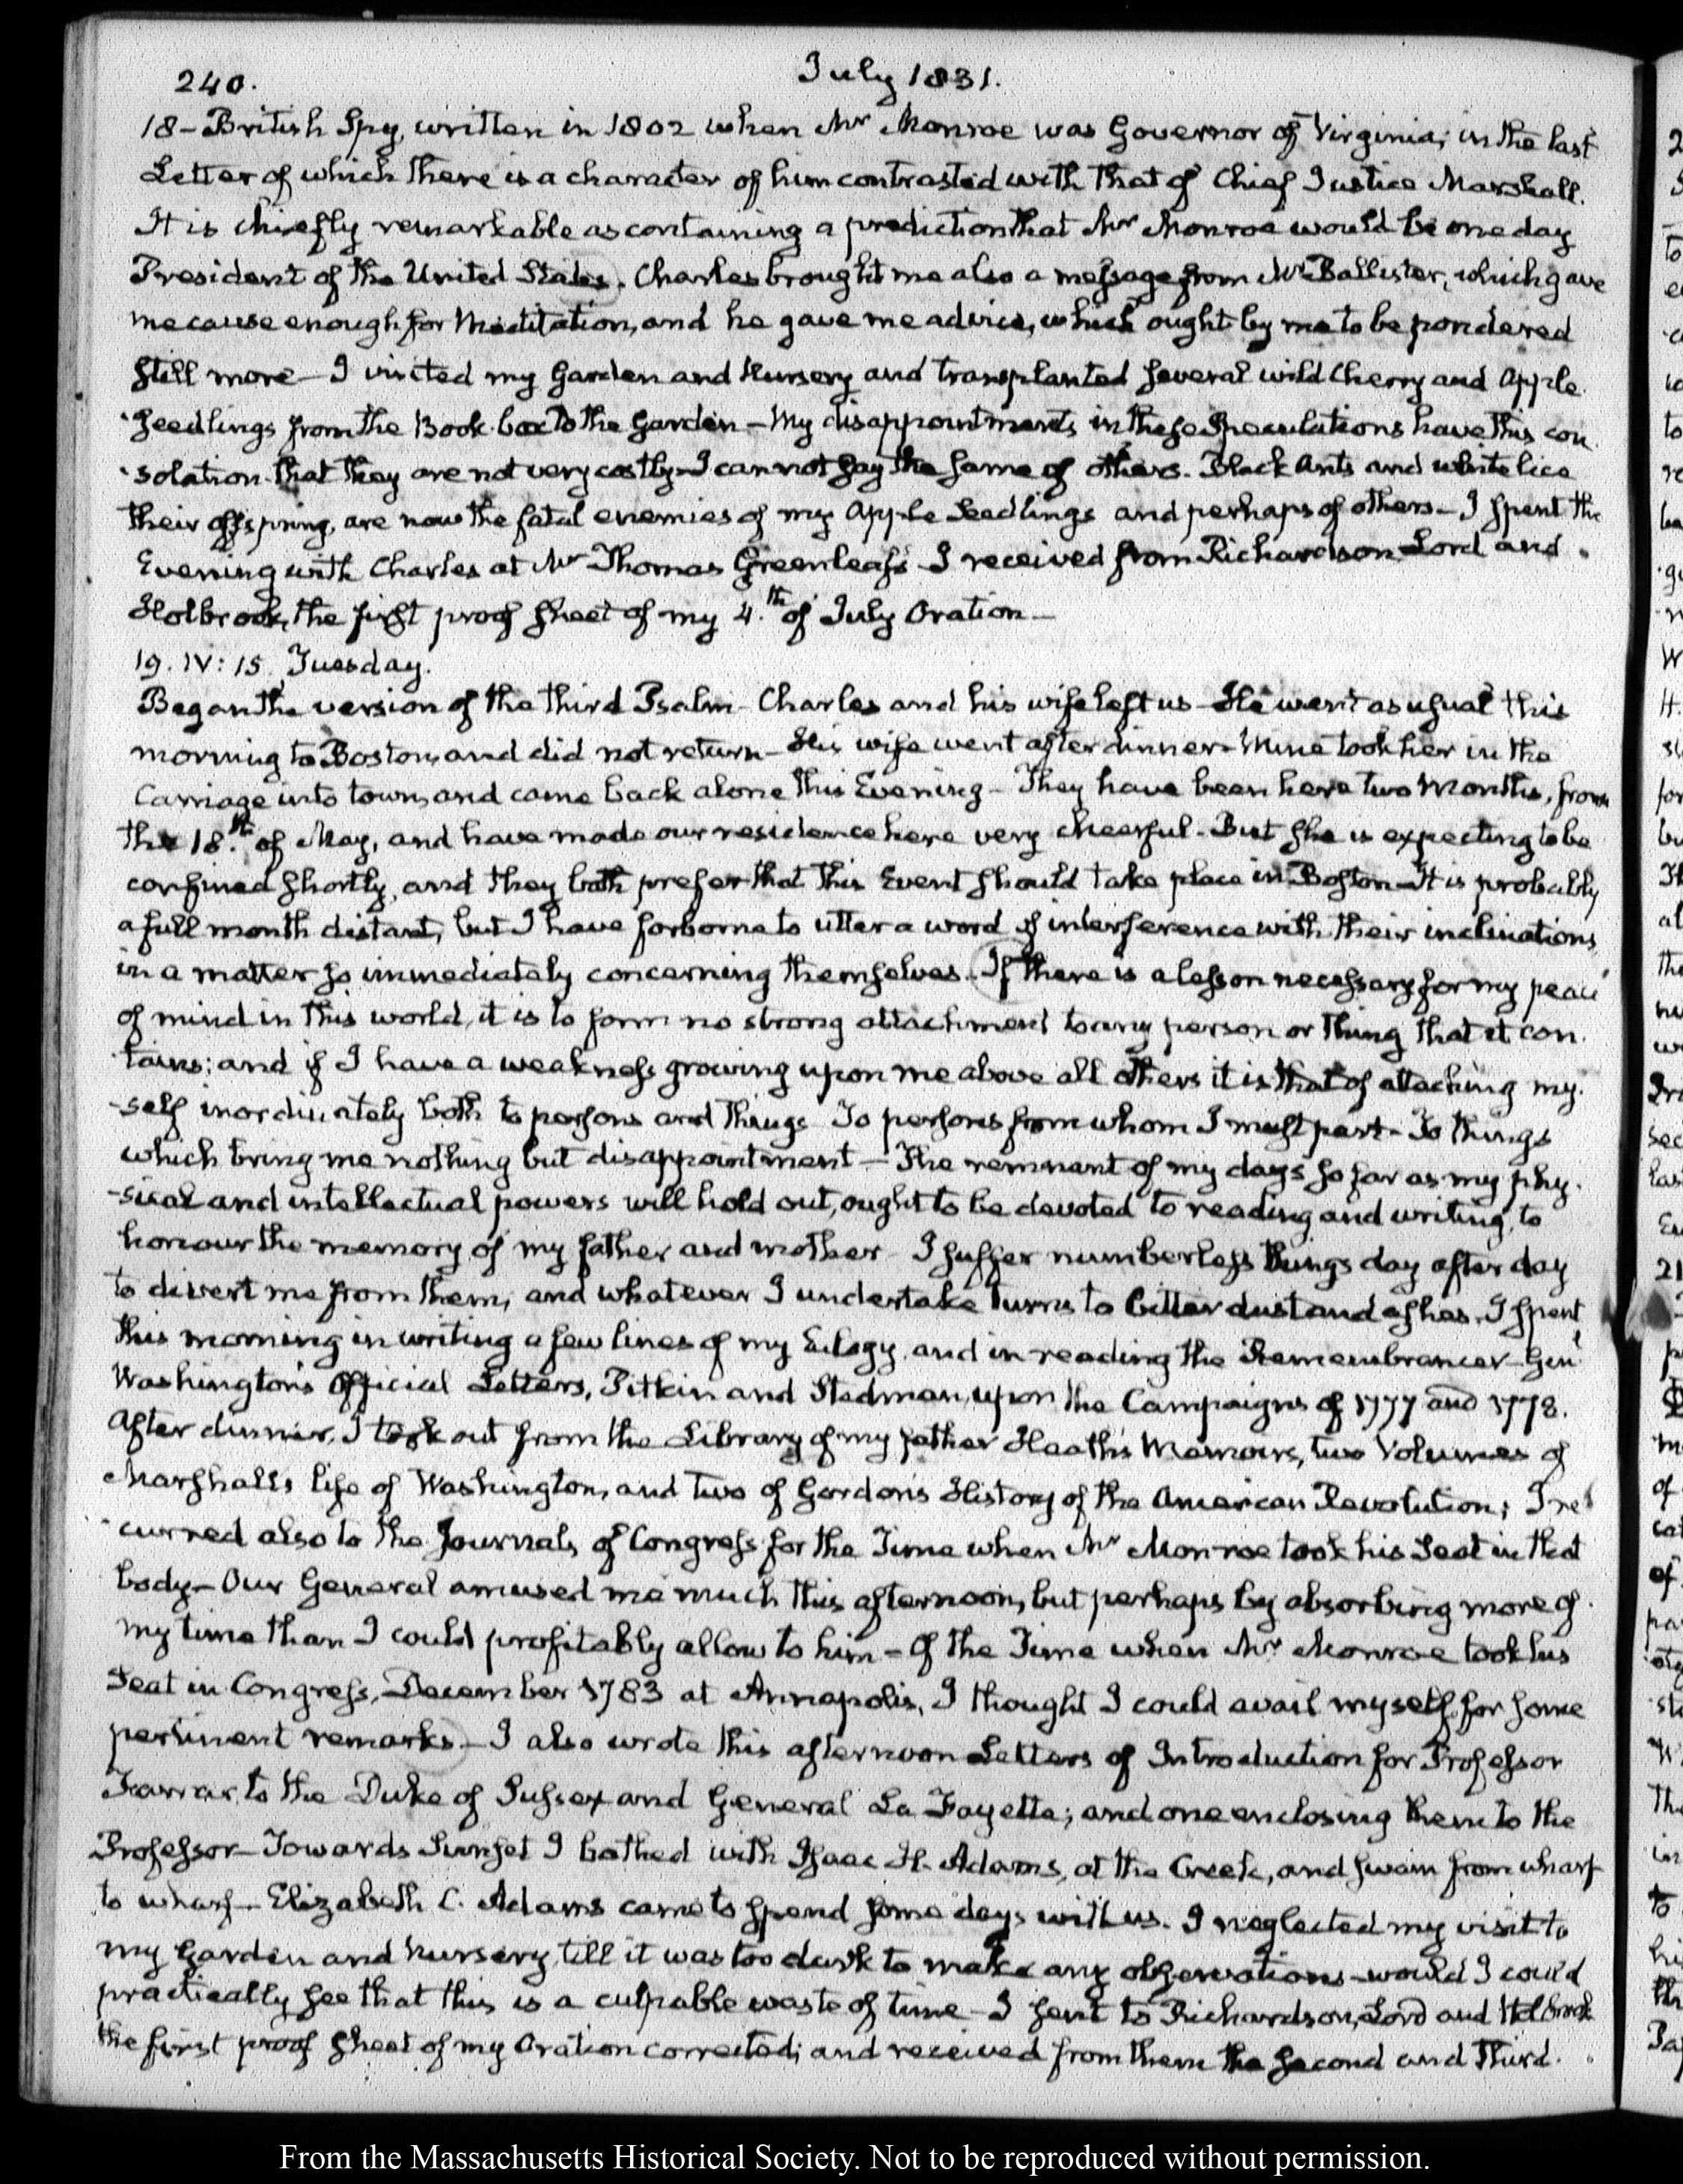 240.
July 1831.
18-British Spy, written in 1802 when Mr Monroe was Governor of Virginia; in the last
Letter of which there is a character of him contrasted with that of Chief Justice Marshall.
It is chiefly remarkable as containing a prediction that Mr Monroe would be one day
President of the United States. Charles brought me also a message from Mr Ballister, which gave
me cause enough for Meditation, and he gave me advice, which ought by me to be pondered
still more— I visited my Garden and Nursery and transplanted several wild Cherry and Apple
seedlings from the Book-box to the Garden—My disappointments in these Speculations have this con
solation that they are not very costly—I cannot say the same of others. Black Ants and white lice
their offspring, are now the fatal enemies of my Apple Seedlings and perhaps of others—I spent the
Evening with Charles at Mr Thomas Greenleaf's I received from Richardson Lord and
Holbrook, the first proof sheet of my 4.th of July Oration—
19. IV: 15. Tuesday.
Began the version of the third Psalm— Charles and his wife left us—He went as usual this
morning to Boston, and did not return—His wife went after dinner—Mine took her in the
Carriage into town, and came back alone this Evening— They have been here two Months, from
the 18.th of May, and have made our residence here very cheerful—But she is expecting to be
confined shortly, and they both prefer that this Event should take place in Boston—It is probably
a full month distant, but I have forborne to utter a word of interference with their inclinations,
in a matter so immediately concerning themselves. If there is a lesson necessary for my peace
of mind in this world, it is to form no strong attachment to any person or thing that it con
tains; and if I have a weakness growing upon me above all others it is that of attaching my-
-self inordinately both to persons and things To persons from whom I must part—To things
which bring me nothing but disappointment—The remnant of my days so far as my phy-
-sical and intellectual powers will hold out, ought to be devoted to reading and writing, to
honour the memory of my father and mother— I suffer numberless things day after day
to divert me from them, and whatever I undertake turns to bitter dust and ashes. I spent
this morning in writing a few lines of my Eulogy, and in reading the Remembrancer—Genl
Washington's Official Letters, Pitkin and Stedman, upon the Campaigns of 1777 and 1778.
After dinner, I took out from the Library of my father Heath's Memoirs, two Volumes of
Marshall's life of Washington, and two of Gordon's History of the American Revolution; I re
curred also to the Journals of Congress for the Time when Mr Monroe took his Seat in that
body—Our General amused me much this afternoon, but perhaps by absorbing more of
my time than I could profitably allow to him—Of the Time when Mr Monroe took his
Seat in Congress, December 1783 at Annapolis, I thought I could avail myself for some
pertinent remarks.—I also wrote this afternoon Letters of Introduction for Professor
Farrar, to the Duke of Sussex and General La Fayette; and one enclosing them to the
Professor—Towards Sunset I bathed with Isaac H. Adams, at the Creek, and swam from wharf
to wharf—Elizabeth C. Adams came to spend some days with us. I neglected my visit to
my Garden and Nursery, till it was too dark to make any observations—would I could
practically see that this is a culpable waste of time—I sent to Richardson, Lord and Holbrook
the first proof sheet of my Oration corrected; and received from them the second and Third.
From the Massachusetts Historical Society. Not to be reproduced without permission.